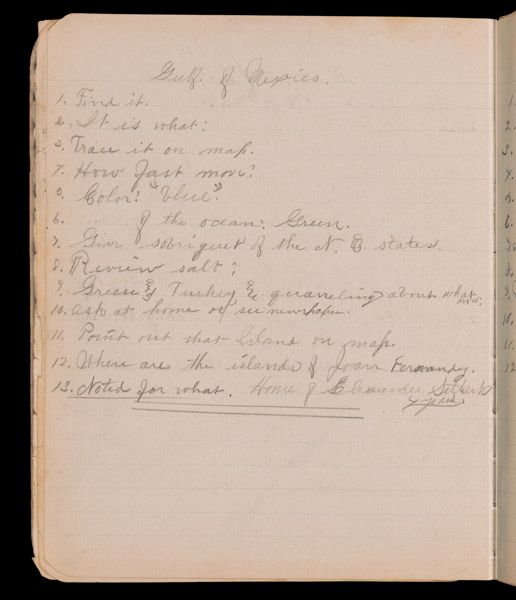 Gulf. of Mexico.
1. Find it.
2. It is what:
3. Trace it on map.
4. How fast move?
5. Color? "blue."
6. " of the ocean: Green.
7. Give sobriquet of the N. E states.
8. Review salt;
9. Greese & Turkey & quarreling about what now,
10. ask at home or see newspaper.
11. Point out that Island on map.
12. Where are the islands of Joan Fernandez.
13. Noted for what. Home of Alexander Selkirk
4 years.
1.
2.
3.
4.
5.
6.
7.
8.
9.
10.
11.
12